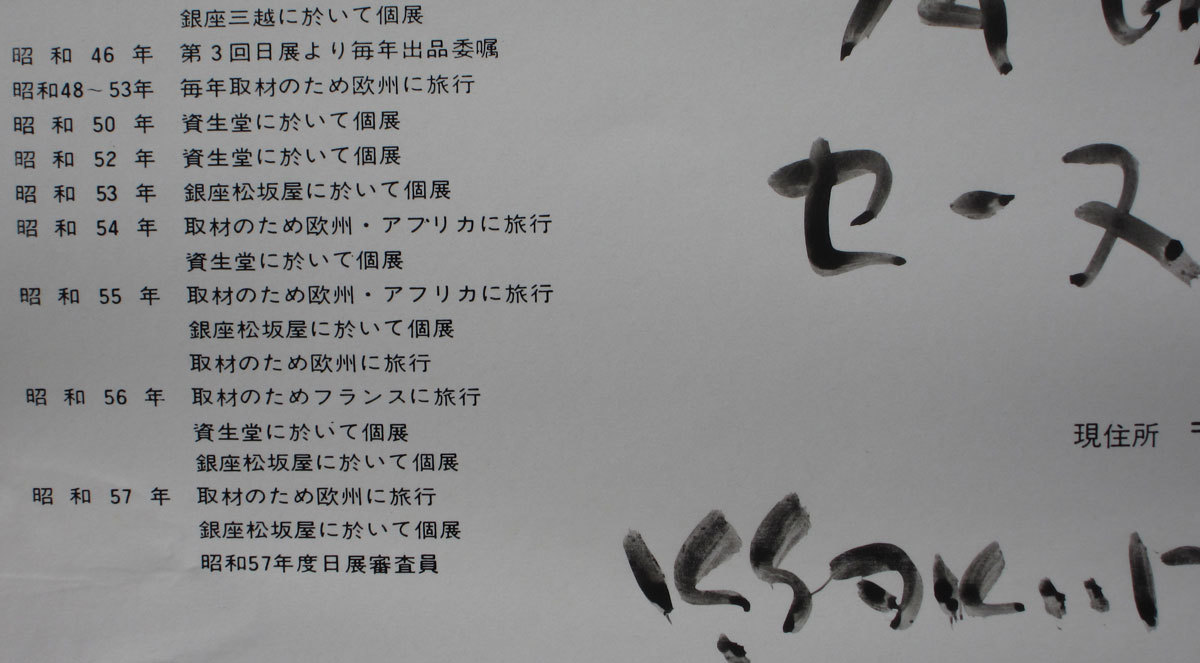 銀座三越に於いて個展
昭和46年 第3回日展より毎年出品委嘱
昭和48～53年 毎年取材のため欧州に旅行
昭和50年 資生堂に於いて個展
昭和52年 資生堂に於いて個展
昭和53年 銀座松坂屋に於いて個展
昭和54年 取材のため欧州・アフリカに旅行
資生堂に於いて個展
昭和55年 取材のため欧州・アフリカに旅行
銀座松坂屋に於いて個展
取材のため欧州に旅行
昭和56年 取材のためフランスに旅行
資生堂に於いて個展
銀座松坂屋に於いて個展
昭和57年 取材のため欧州に旅行
銀座松坂屋に於いて個展
昭和57年度日展審査員
セーヌ
現住所